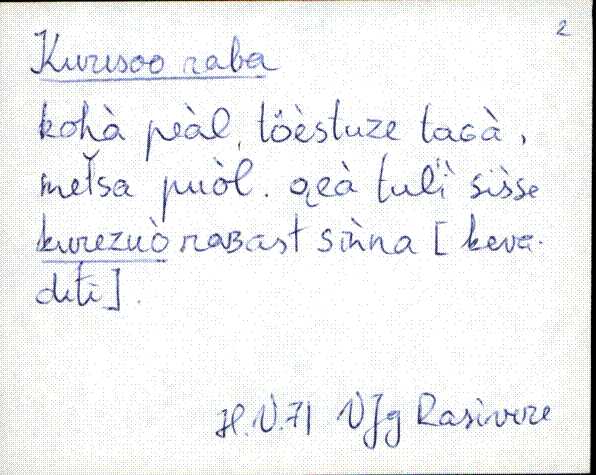 2
Kurisoo raba
kohà peàl, töèstuze tacà,
metsa puòl. ọeà tulì sìsse
kurezuò raʙast sìnna [keva-
diti].
H.V.71 VJg Rasivere